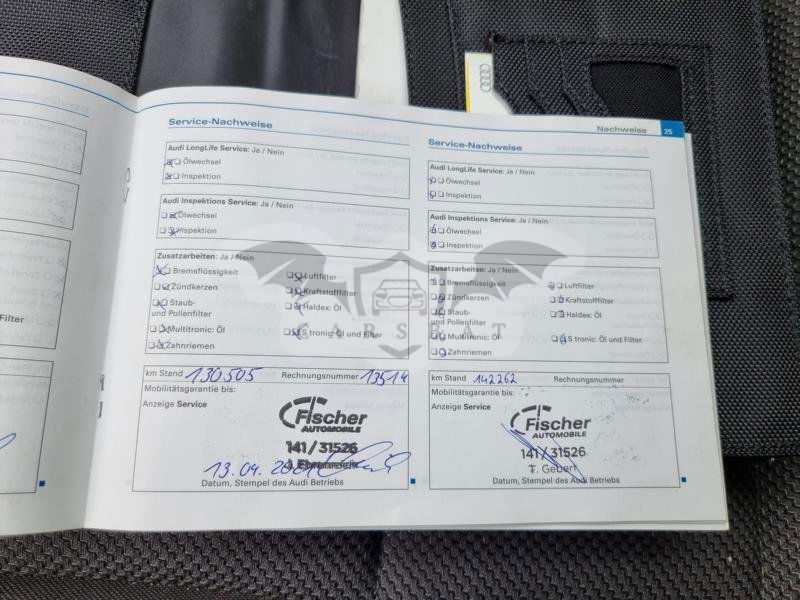 Service-Nachweise
Audi LongLife Service: Ja / Nein
Ölwechsel
Inspektion
Audi Inspektions Service: Ja / Nein
Ölwechsel
Inspektion
Zusatzarbeiten: Ja / Nein
Bremsflüssigkeit
Luftfilter
Zündkerzen
Kraftstofffilter
Staub-
und Pollenfilter
Haldex: Öl
Multitronic: Öl
S tronic: Öl und Filter
Zahnriemen
km Stand 130505 Rechnungsnummer 13514
Mobilitätsgarantie bis:
Anzeige Service
Fischer
AUTOMOBILE
141/31526
13.04.
Datum, Stempel des Audi Betriebs
Nachweise 25
Service-Nachweise
Audi LongLife Service: Ja / Nein
Ölwechsel
Inspektion
Audi Inspektions Service: Ja / Nein
Ölwechsel
Inspektion
Zusatzarbeiten: Ja / Nein
Bremsflüssigkeit
Luftfilter
Zündkerzen
Kraftstofffilter
Staub-
und Pollenfilter
Haldex: Öl
Multitronic: Öl
S tronic: Öl und Filter
Zahnriemen
km Stand 142262 Rechnungsnummer
Mobilitätsgarantie bis:
Anzeige Service
Fischer
AUTOMOBILE
141/31526
T. Gebert
Datum, Stempel des Audi Betriebs
Filter
CARSBAT